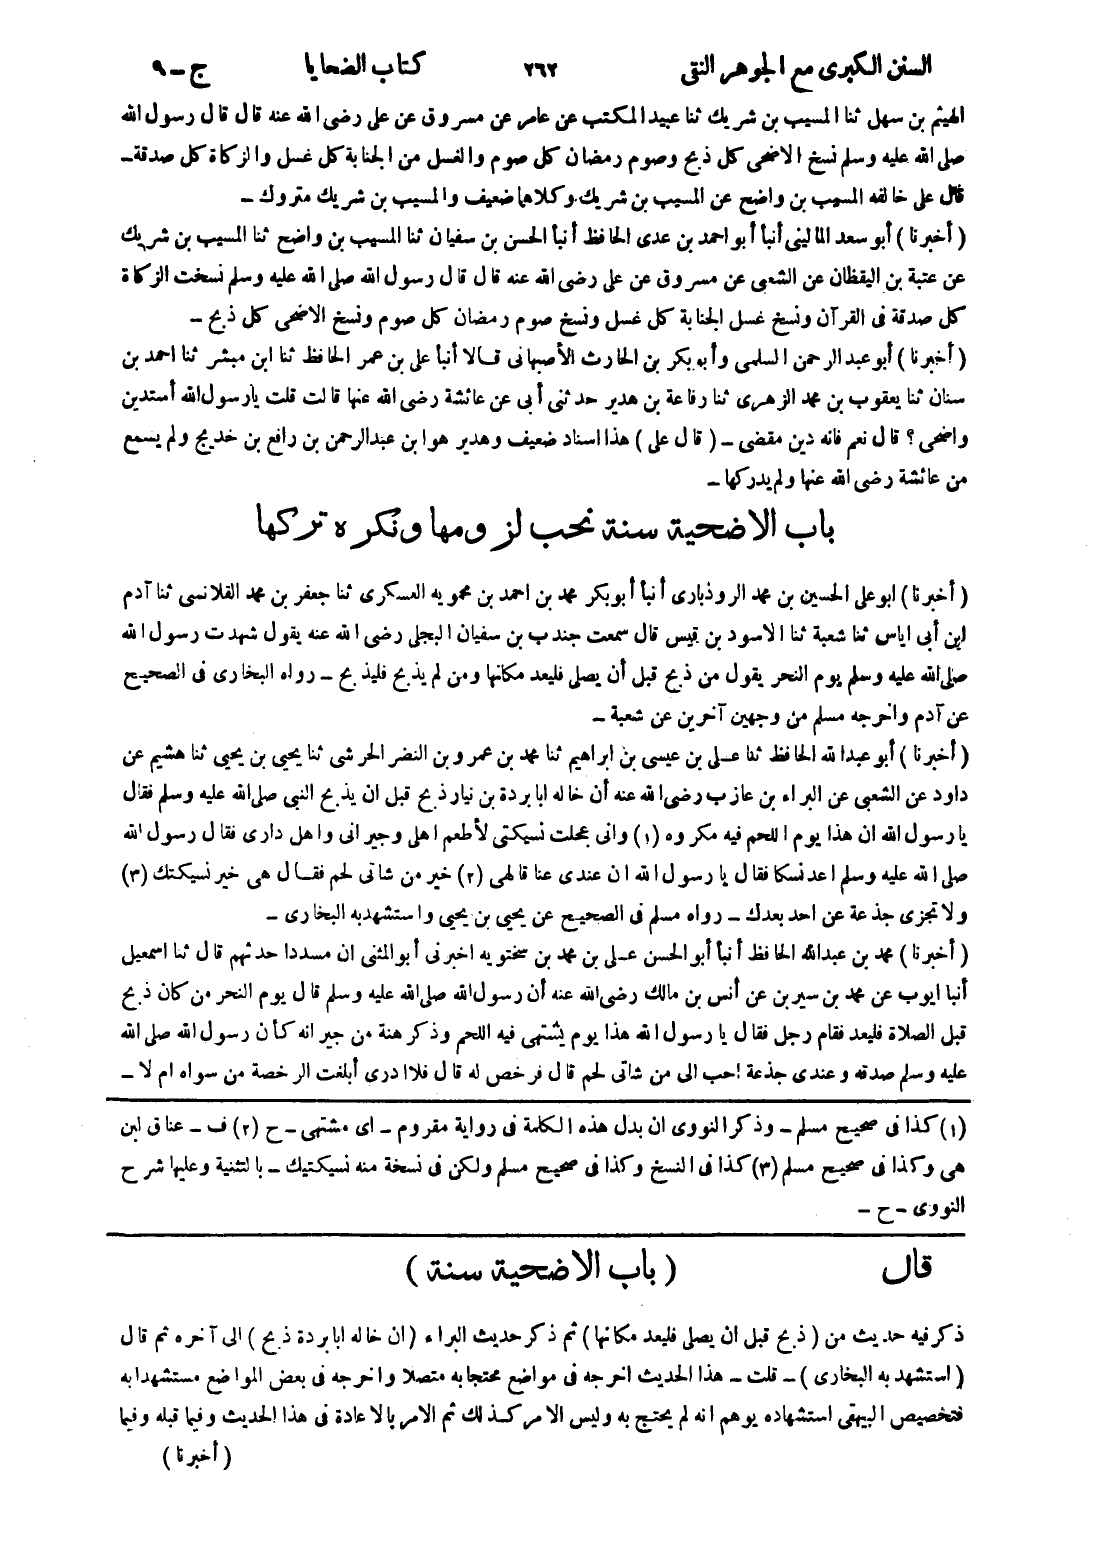 السنن الكبرى مع الجوهر النقى ٢٦٢ كتاب الضحايا ج - ٩
الهيثم بن سهل ثنا المسيب بن شريك ثنا عبيد المكتب عن عامر عن مسروق عن على رضى الله عنه قال قال رسول الله
صلى الله عليه وسلم نسخ الاضحى كل ذبح وصوم رمضان كل صوم والغسل من الجنابة كل غسل والزكاة كل صدقة -
قال على خالفه المسيب بن واضح عن المسيب بن شريك وكلاهما ضعيف والمسيب بن شريك متروك -
( أخبرنا ) أبو سعد المالينى أنبأ أبو احمد بن عدى الحافظ أنبأ الحسن بن سفيان ثنا المسيب بن واضح ثنا المسيب بن شريك
عن عتبة بن اليقظان عن الشعبى عن مسروق عن على رضى الله عنه قال قال رسول الله صلى الله عليه وسلم نسخت الزكاة
كل صدقة فى القرآن ونسخ غسل الجنابة كل غسل ونسخ صوم رمضان كل صوم ونسخ الاضحى كل ذبح -
( أخبرنا ) أبو عبد الرحمن السلمى وأبو بكر بن الحارث الأصبهانى قالا أنبأ على بن عمر الحافظ ثنا ابن مبشر ثنا احمد بن
سنان ثنا يعقوب بن محمد الزهرى ثنا رفاعة بن هدير حدثنى أبى عن عائشة رضى الله عنها قالت قلت يا رسول الله أستدين
واضحى ؟ قال نعم فانه دين مقضى - ( قال على ) هذا اسناد ضعيف وهدير هو ابن عبد الرحمن بن رافع بن خديج ولم يسمع
من عائشة رضى الله عنها ولم يدركها -
باب الاضحية سنة نحب لزومها ونكره تركها
( أخبرنا ) ابو على الحسين بن محمد الروذبارى أنبأ أبو بكر محمد بن احمد بن محمويه العسكرى ثنا جعفر بن محمد القلانسى ثنا آدم
ابن أبى اياس ثنا شعبة ثنا الاسود بن قيس قال سمعت جندب بن سفيان البجلى رضى الله عنه يقول شهدت رسول الله
صلى الله عليه وسلم يوم النحر يقول من ذبح قبل أن يصلى فليعد مكانها ومن لم يذبح فليذبح - رواه البخارى فى الصحيح
عن آدم واخرجه مسلم من وجهين آخرين عن شعبة -
( أخبرنا ) أبو عبد الله الحافظ ثنا على بن عيسى بن ابراهيم ثنا محمد بن عمرو بن النضر الحرشى ثنا يحيى بن يحيى ثنا هشيم عن
داود عن الشعبى عن البراء بن عازب رضى الله عنه أن خاله ابا بردة بن نيار ذبح قبل ان يذبح النبى صلى الله عليه وسلم فقال
يا رسول الله ان هذا يوم اللحم فيه مكروه (١) وانى عجلت نسيكتى لأطعم اهلى وجيرانى واهل دارى فقال رسول الله
صلى الله عليه وسلم اعد نسكا فقال يا رسول الله ان عندى عناقا لهى (٢) خير من شاتى لحم فقال هى خير نسيكتك (٣)
ولا تجزى جذعة عن احد بعدك - رواه مسلم فى الصحيح عن يحيى بن يحيى واستشهد به البخارى -
( أخبرنا ) محمد بن عبد الله الحافظ أنبأ أبو الحسن على بن محمد بن سختويه اخبرنى أبو المثنى ان مسددا حدثهم قال ثنا اسمعيل
أنبا ايوب عن محمد بن سيرين عن أنس بن مالك رضى الله عنه أن رسول الله صلى الله عليه وسلم قال يوم النحر من كان ذبح
قبل الصلاة فليعد فقام رجل فقال يا رسول الله هذا يوم يشتهى فيه اللحم وذكر هنة من جيرانه كأن رسول الله صلى الله
عليه وسلم صدقه وعندى جذعة احب الى من شاتى لحم قال فرخص له قال فلا ادرى أبلغت الرخصة من سواه ام لا -
(١) كذا فى صحيح مسلم - وذكر النووى ان بدل هذه الكلمة فى رواية مقروم - اى مشتهى - ح (٢) ف - عناق لبن
هى وكذا فى صحيح مسلم (٣) كذا فى النسخ وكذا فى صحيح مسلم ولكن فى نسخة منه نسيكتيك - بالتثنية وعليها شرح
النووى - ح -
قال ( باب الاضحية سنة )
ذكر فيه حديث من ( ذبح قبل ان يصلى فليعد مكانها ) ثم ذكر حديث البراء ( ان خاله ابا بردة ذبح ) الى آخره ثم قال
( استشهد به البخارى ) - قلت - هذا الحديث اخرجه فى مواضع محتجا به متصلا واخرجه فى بعض المواضع مستشهدا به
فتخصيص البيهقى استشهاده يوهم انه لم يحتج به وليس الامر كذلك ثم الامر بالاعادة فى هذا الحديث وفيما قبله وفيما
( أخبرنا )